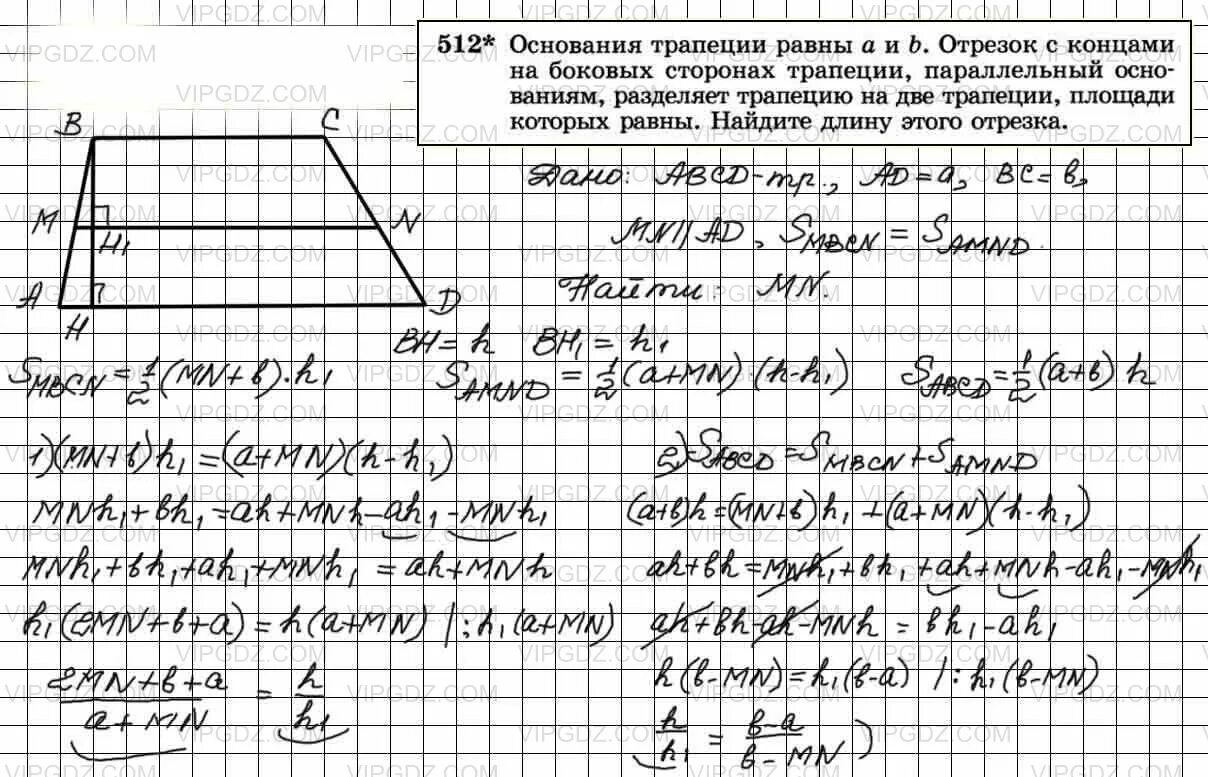 512* Основания трапеции равны a и b. Отрезок с концами
на боковых сторонах трапеции, параллельный осно-
ваниям, разделяет трапецию на две трапеции, площади
которых равны. Найдите длину этого отрезка.
B C
M N
H₁
A D
H
Дано: ABCD-тр., AD=a, BC=в,
MN||AD, S_MBCN = S_AMND.
Найти: MN.
BH=h BH₁=h₁
S_MBCN=½(MN+в)·h₁ S_AMND=½(a+MN)(h-h₁) S_ABCD=½(a+в)h
1)(MN+в)h₁=(a+MN)(h-h₁)
MNh₁+вh₁=ah+MNh-ah₁-MNh₁
MNh₁+вh₁+ah₁+MNh₁=ah+MNh
h₁(2MN+в+a)=h(a+MN) |:h₁(a+MN)
(2MN+в+a)/(a+MN) = h/h₁
2)S_ABCD=S_MBCN+S_AMND
(a+в)h=(MN+в)h₁+(a+MN)(h-h₁)
ah+вh=MNh₁+вh₁+ah+MNh-ah₁-MNh₁
ah+вh-ah-MNh=вh₁-ah₁
h(в-MN)=h₁(в-a) |:h₁(в-MN)
h/h₁ = (в-a)/(в-MN) )
VIPGDZ.COM